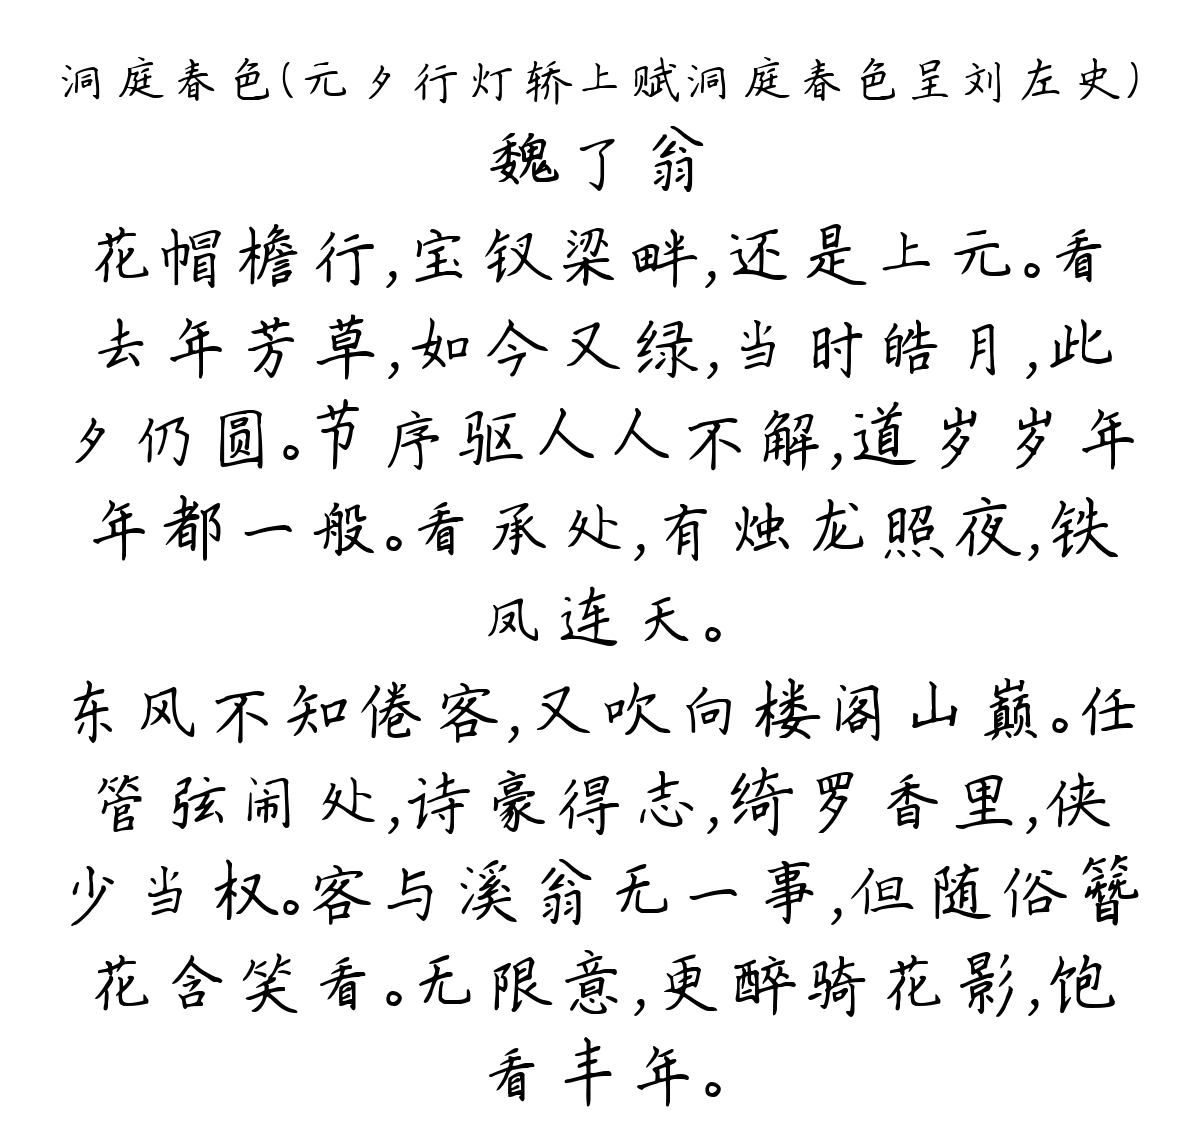 洞庭春色(元夕行灯轿上赋洞庭春色呈刘左史)
魏了翁
花帽檐行,宝钗梁畔,还是上元。看
去年芳草,如今又绿,当时皓月,此
夕仍圆。节序驱人人不解,道岁岁年
年都一般。看承处,有烛龙照夜,铁
凤连天。
东风不知倦客,又吹向楼阁山巅。任
管弦闹处,诗豪得志,绮罗香里,侠
少当权。客与溪翁无一事,但随俗簪
花含笑看。无限意,更醉骑花影,饱
看丰年。